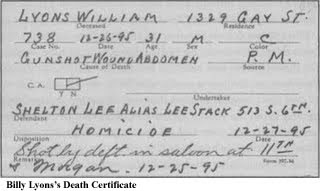 LYONS WILLIAM 1329 GAY ST.
Deceased Residence
738 12-26-95 31 M C
Case No. Date Age Sex Color
GUNSHOT WOUND ABDOMEN P.M.
Cause of Death Source
C.A. Y N
Undertaker
SHELTON LEE ALIAS LEE STACK 513 S. 6TH.
Defendant
HOMICIDE 12-27-95
Disposition Date
Shot by deft. in saloon at 11TH
Remarks
& Morgan. 12-25-95
Billy Lyons's Death Certificate